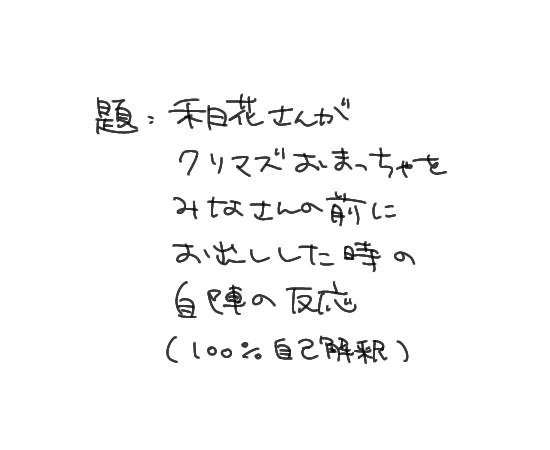 題:和花さんが
クリマズおまっちゃを
みなさんの前に
お出しした時の
自陣の反応
(100%自己解釈)